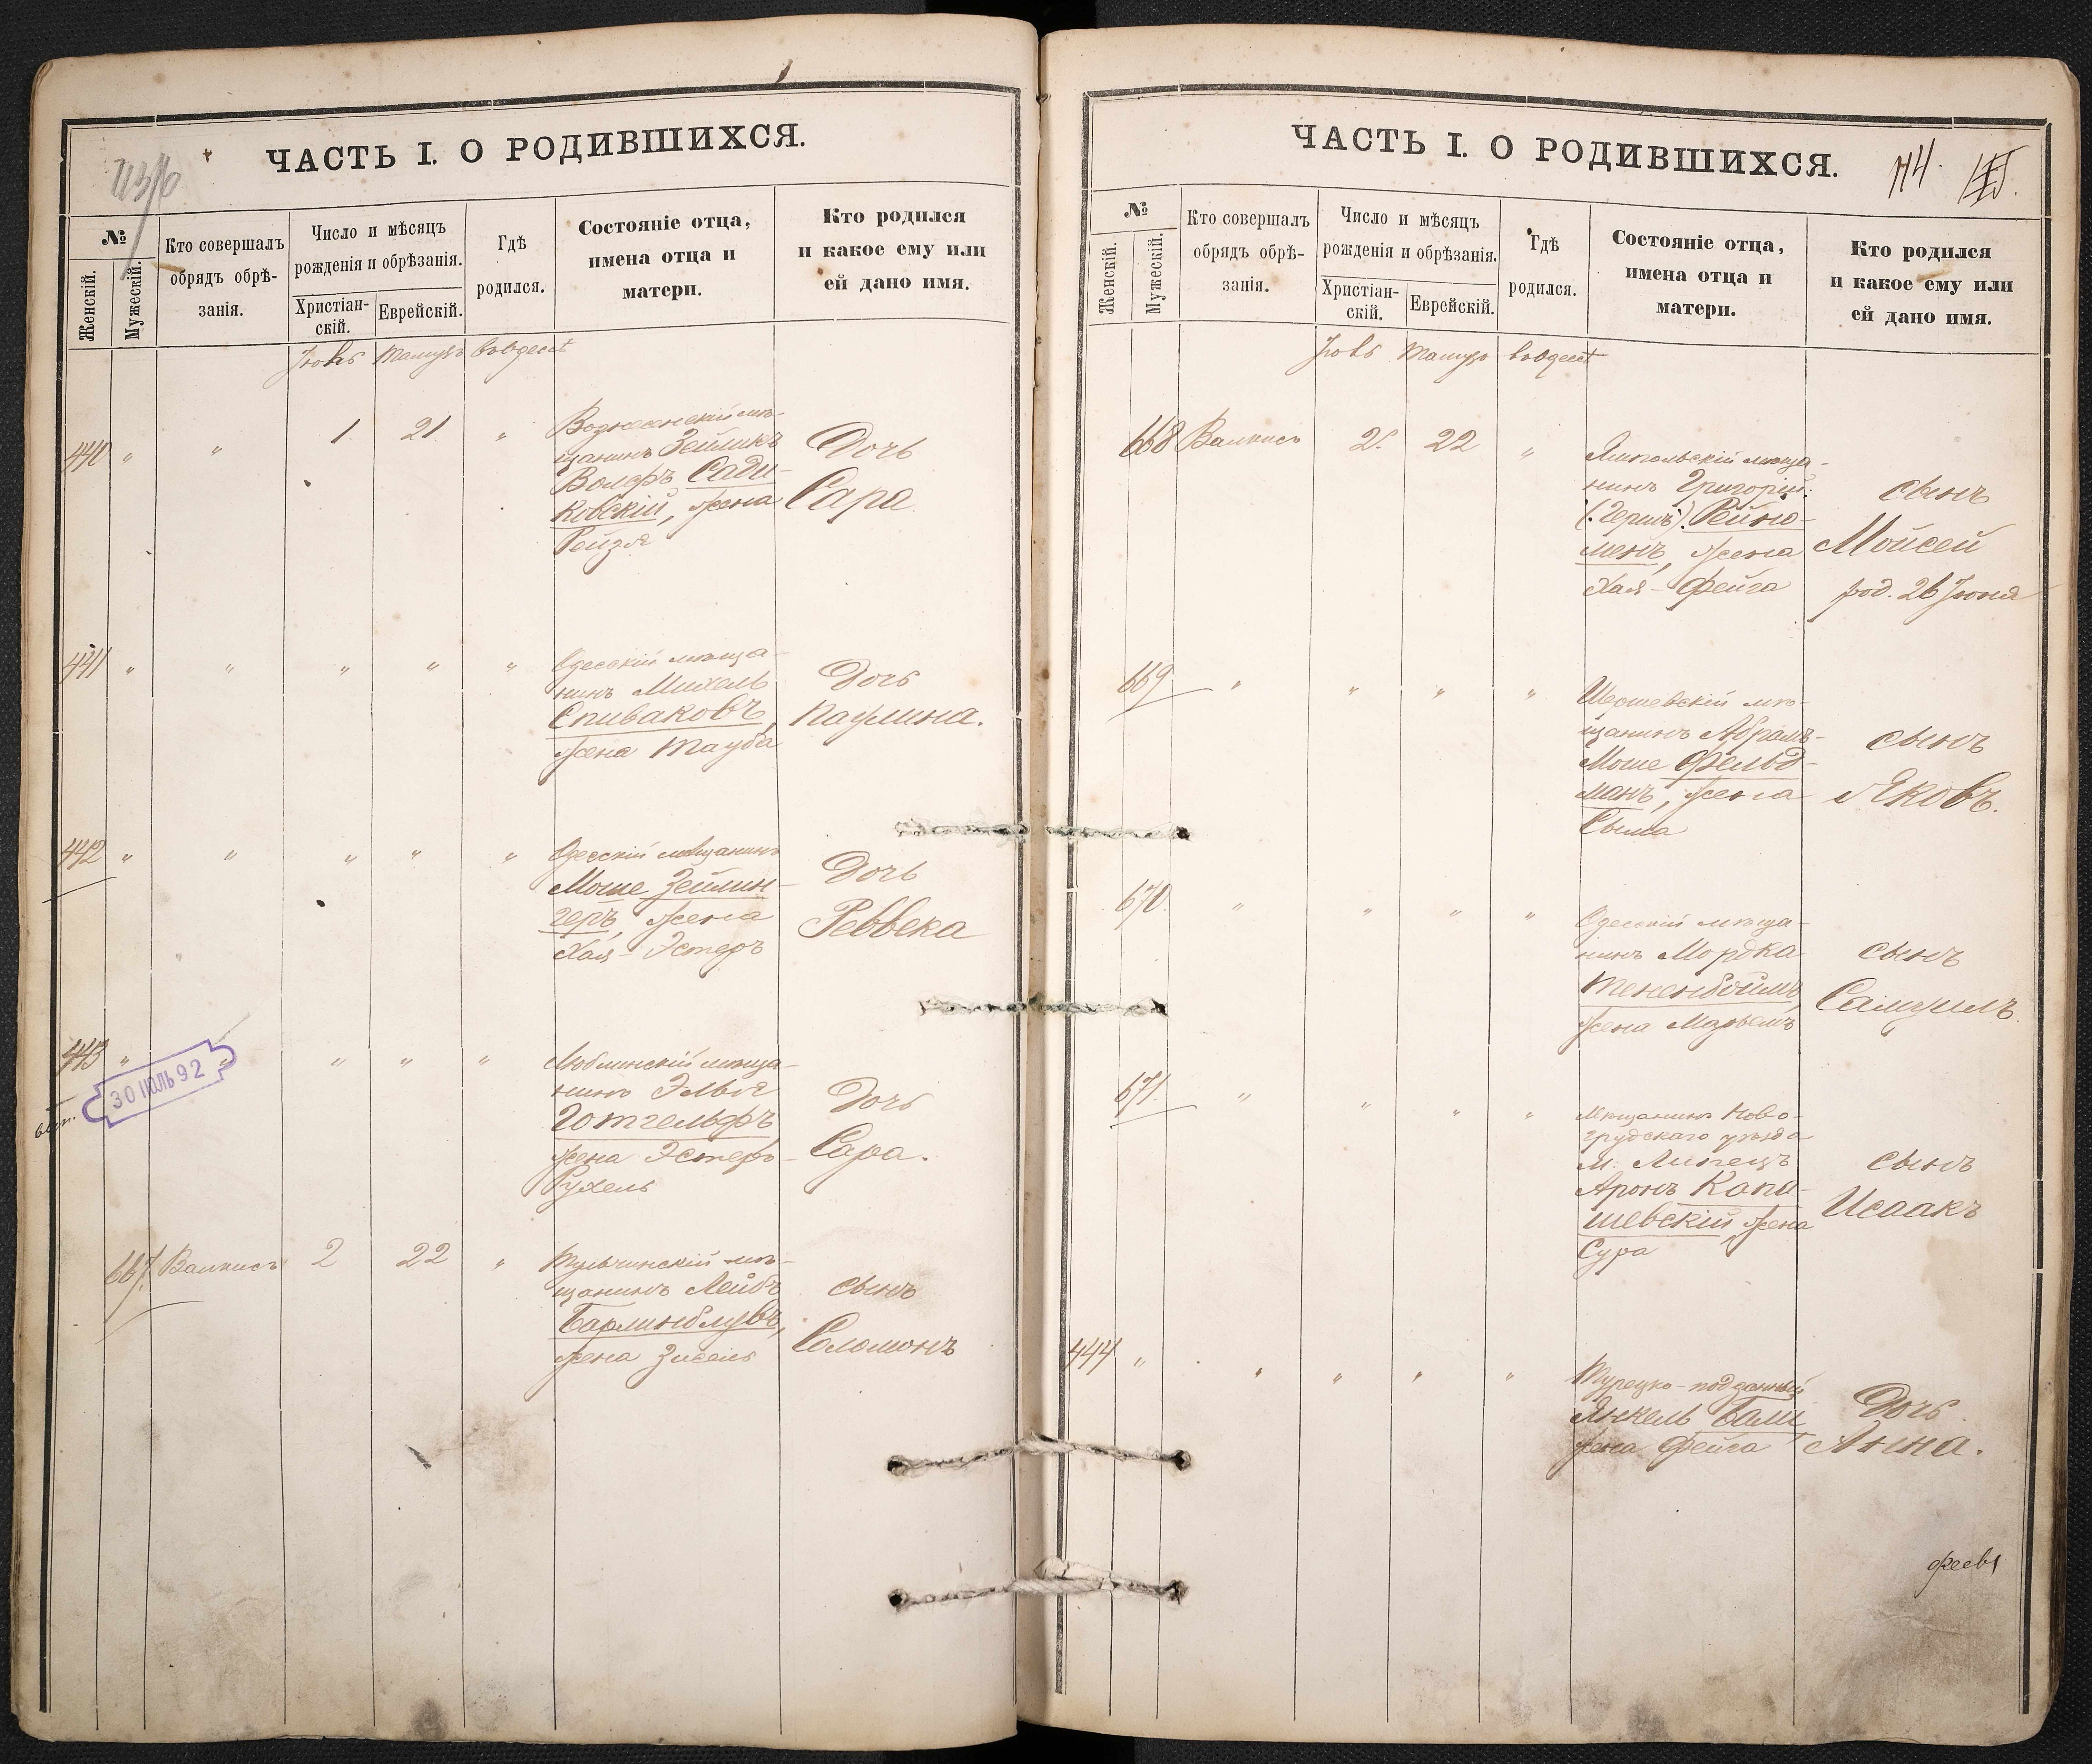 ЧАСТЬ I. О РОДИВШИХСЯ.
№
Женскій.
Мужескій.
Кто совершалъ
обрядъ обрѣ-
занія.
Число и мѣсяцъ
рожденія и обрѣзанія.
Христіан-
скій.
Еврейскій.
Гдѣ
родился.
Состояніе отца,
имена отца и
матери.
Кто родился
и какое ему или
ей дано имя.
Іюль Тамузъ въ Одессѣ
440 " " 1. 21 "
Вознесенскій мѣ-
щанинъ Зейликъ
Волфъ Сади-
ковскій, жена
Рейзя
Дочь
Сара
441 " " " " "
Одесскій мѣща-
нинъ Михель
Спиваковъ,
жена Тауба
Дочь
Паулина.
442 " " " " "
Одесскій мѣщанинъ
Моше Зейлин-
геръ, жена
Хая-Эстеръ
Дочь
Реввека
443 " " " " "
30 ІЮЛЬ 92
Люблинскій мѣща-
нинъ Элья
Готгельфъ
жена Эстеръ-
Рухель
Дочь
Сара.
667. Валкисъ 2 22 "
Тульчинскій мѣ-
щанинъ Лейбъ
Барлинблувъ,
жена Зисель
сынъ
Соломонъ
ЧАСТЬ I. О РОДИВШИХСЯ.
114.
№
Женскій.
Мужескій.
Кто совершалъ
обрядъ обрѣ-
занія.
Число и мѣсяцъ
рожденія и обрѣзанія.
Христіан-
скій.
Еврейскій.
Гдѣ
родился.
Состояніе отца,
имена отца и
матери.
Кто родился
и какое ему или
ей дано имя.
Іюль Тамузъ въ Одессѣ
668 Валкисъ 2. 22 "
Ямпольскій мѣща-
нинъ Григорій
(Гершъ) Рейно-
менъ, жена
Хая-Фейга
сынъ
Мойсей
род. 26 Іюня
669 " " " "
мѣ-
щанинъ Абрамъ-
Моше Фельд-
манъ, жена
Сыма
сынъ
Яковъ.
670. " " " "
Одесскій мѣща-
нинъ Мордка
Тененбоймъ,
жена Марьемъ
сынъ
Самуилъ.
671. " " " "
Мѣщанинъ Ново-
грудскаго уѣзда
м.
Аронъ Капи-
шевскій, жена
Сура
сынъ
Исаакъ
444 " " " " "
Турецко-подданный
Янкель Бали,
жена Фейга
Дочь
Анна.